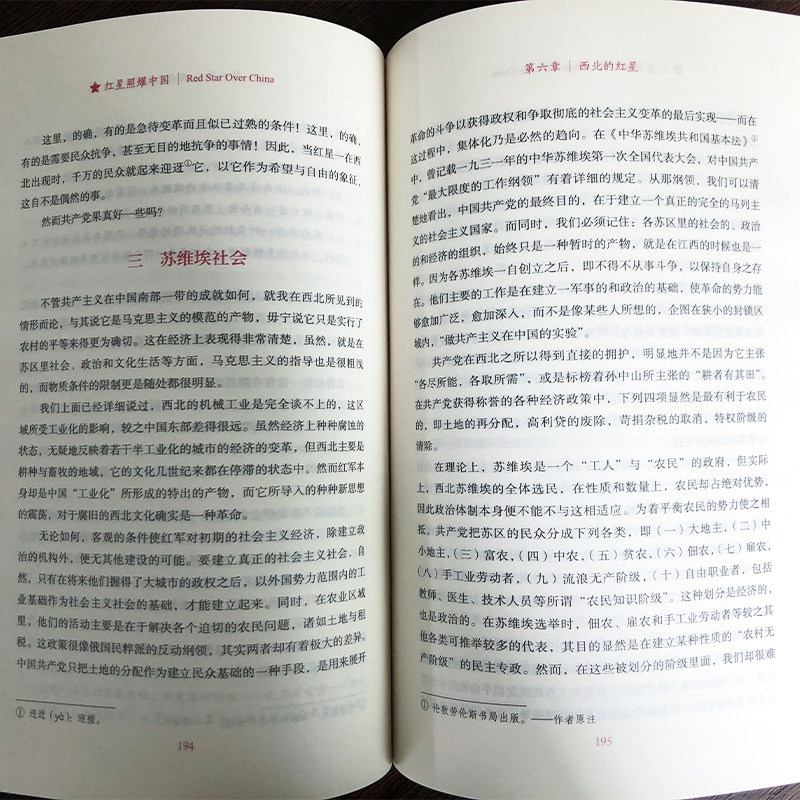 红星照耀中国 | Red Star Over China
这里,的确,有的是急待变革而且似已过熟的条件!这里,的确,
有的是需要民众抗争,甚至无目的地抗争的事情!因此,当红星一在西
北出现时,千万的民众就起来迎迓①它,以它作为希望与自由的象征,
这自不是偶然的事。
然而共产党果真好一些吗?
三 苏维埃社会
不管共产主义在中国南部一带的成就如何,就我在西北所见到的
情形而论,与其说它是马克思主义的模范的产物,毋宁说它只是实行了
农村的平等来得更为确切。这在经济上表现得非常清楚,虽然,就是在
苏区里社会、政治和文化生活等方面,马克思主义的指导也是很粗浅
的,而物质条件的限制更是随处都很明显。
我们上面已经详细说过,西北的机械工业是完全谈不上的,这区
域所受工业化的影响,较之中国东部差得很远。虽然经济上种种腐蚀的
状态,无疑地反映着若干半工业化的城市的经济的变革,但西北主要是
耕种与畜牧的地域,它的文化几世纪来都在停滞的状态中。然而红军本
身却是中国“工业化”所形成的特出的产物,而它所导入的种种新思想
的震荡,对于腐旧的西北文化确实是一种革命。
无论如何,客观的条件使红军对初期的社会主义经济,除建立政
治的机构外,便无其他建设的可能。要建立真正的社会主义社会,自
然,只有在将来他们握得了大城市的政权之后,以外国势力范围内的工
业基础作为社会主义社会的基础,才能建立起来。同时,在农业区域
里,他们的活动主要是在于解决各个迫切的农民问题,诸如土地与租
税。这政策很像俄国民粹派的反动纲领,其实两者却有着极大的差异。
中国共产党只把土地的分配作为建立民众基础的一种手段,是用来展开
① 迎迓(yà):迎接。
194
第六章 | 西北的红星
革命的斗争以获得政权和争取彻底的社会主义变革的最后实现——而在
这过程中,集体化乃是必然的趋向。在《中华苏维埃共和国基本法》①
中,曾记载一九三一年的中华苏维埃第一次全国代表大会,对中国共产
党“最大限度的工作纲领”有着详细的规定。从那纲领,我们可以清
楚地看出,中国共产党的最终目的,在于建立一个真正的完全的马列主
义的社会主义国家。而同时,我们必须记住:各苏区里的社会的、政治
的和经济的组织,始终只是一种暂时的产物,就是在江西的时候也是一
样。因为各苏维埃一自创立之后,即不得不从事斗争,以保持自身之存
在。他们主要的工作是在建立一军事的和政治的基础,使革命的势力能
够愈加广泛,愈加深入,而不是像某些人所想的,企图在狭小的封锁区
域内,“做共产主义在中国的实验”。
共产党在西北之所以得到直接的拥护,明显地并不是因为它主张
“各尽所能,各取所需”,或是标榜着孙中山所主张的“耕者有其田”。
在共产党获得称誉的各种经济政策中,下列四项显然是最有利于农民
的,即土地的再分配,高利贷的废除,苛捐杂税的取消,特权阶级的
清除。
在理论上,苏维埃是一个“工人”与“农民”的政府,但实际
上,西北苏维埃的全体选民,在性质和数量上,农民却占绝对优势,
因此政治体制本身便不能不与这相适应。为着平衡农民的势力使之相
抵,共产党把苏区的民众分成下列各类,即(一)大地主,(二)中
小地主,(三)富农,(四)中农,(五)贫农,(六)佃农,(七)雇农,
(八)手工业劳动者,(九)流浪无产阶级,(十)自由职业者,包括
教师、医生、技术人员等所谓“农民知识阶级”。这种划分是经济的,
也是政治的。在苏维埃选举时,佃农、雇农和手工业劳动者等较之其
他各类可推举较多的代表,其目的显然是在建立某种性质的“农村无
产阶级”的民主专政。然而,在这些被划分的阶级里面,我们却很难
① 伦敦劳伦斯书局出版。——作者原注
195